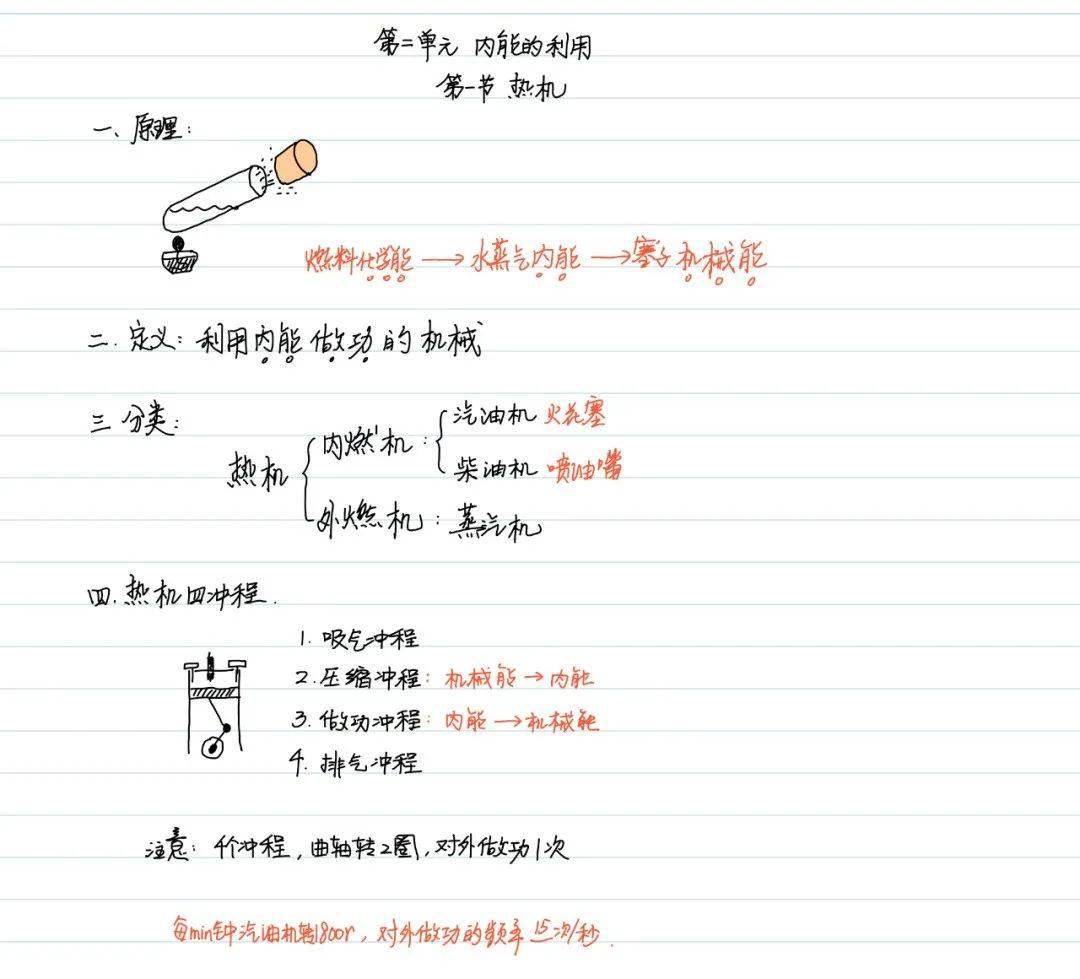 第二单元 内能的利用
第一节 热机
一、原理：
燃料化学能 → 水蒸气内能 → 塞子机械能
二. 定义：利用内能做功的机械
三 分类：
热机
内燃机：
汽油机 火花塞
柴油机 喷油嘴
外燃机：蒸汽机
四. 热机四冲程.
1. 吸气冲程
2. 压缩冲程：机械能 → 内能
3. 做功冲程：内能 → 机械能
4. 排气冲程
注意：4个冲程，曲轴转2圈，对外做功1次
每min钟汽油机转1800r，对外做功的频率 15次/秒.